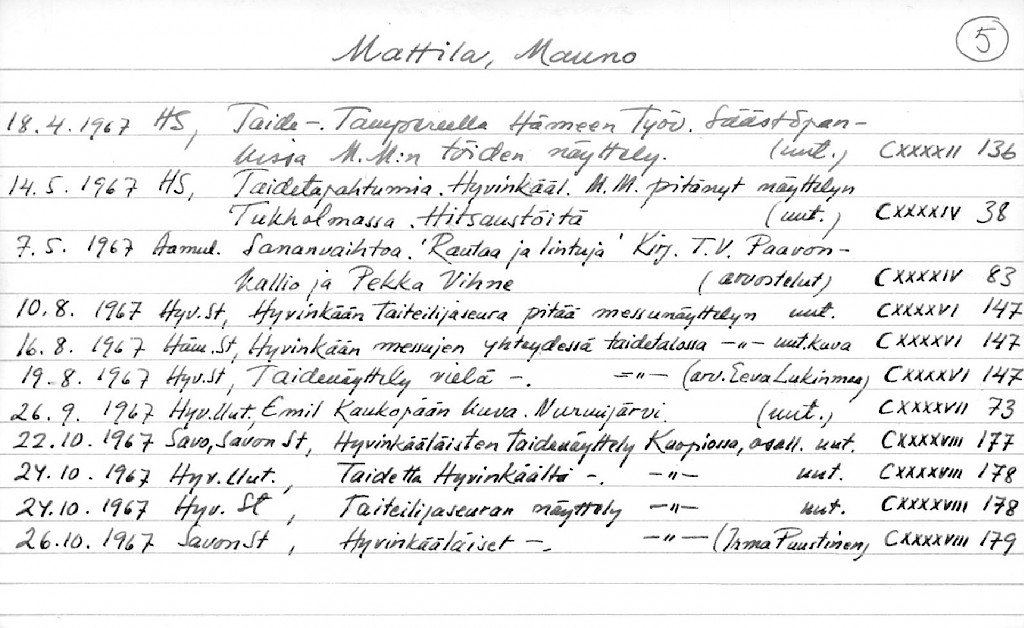 5
Mattila, Mauno
18.4.1967 HS, Taide-. Tampereella Hämeen Työv. Säästöpan-
kissa M.M:n töiden näyttely. (uut.) CXXXXII 136
14.5.1967 HS, Taidetapahtumia. Hyvinkääl. M.M. pitänyt näyttelyn
Tukholmassa. Hitsaustöitä (uut.) CXXXXIV 38
7.5.1967 Aamul. Sananvaihtoa. 'Rautaa ja lintuja' Kirj. T.V. Paavon-
kallio ja Pekka Vihne (arvostelut) CXXXXIV 83
10.8.1967 Hyv.St, Hyvinkään Taiteilijaseura pitää messunäyttelyn uut. CXXXXVI 147
16.8.1967 Häm.St, Hyvinkään messujen yhteydessä taidetalossa -"- uut.kuva CXXXXVI 147
19.8.1967 Hyv.St, Taidenäyttely vielä -. -"- (arv. Eeva Lukinmaa) CXXXXVI 147
26.9.1967 Hyv.Uut, Emil Kaukopään kuva. Nurmijärvi (uut.) CXXXXVII 73
22.10.1967 Savo, Savon St, Hyvinkääläisten taidenäyttely Kuopiossa, osall. uut. CXXXXVIII 177
24.10.1967 Hyv.Uut., Taidetta Hyvinkäältä -. -"- uut. CXXXXVIII 178
24.10.1967 Hyv. St, Taiteilijaseuran näyttely -"- uut. CXXXXVIII 178
26.10.1967 Savon St, Hyvinkääläiset -. -"- (Irma Puustinen) CXXXXVIII 179